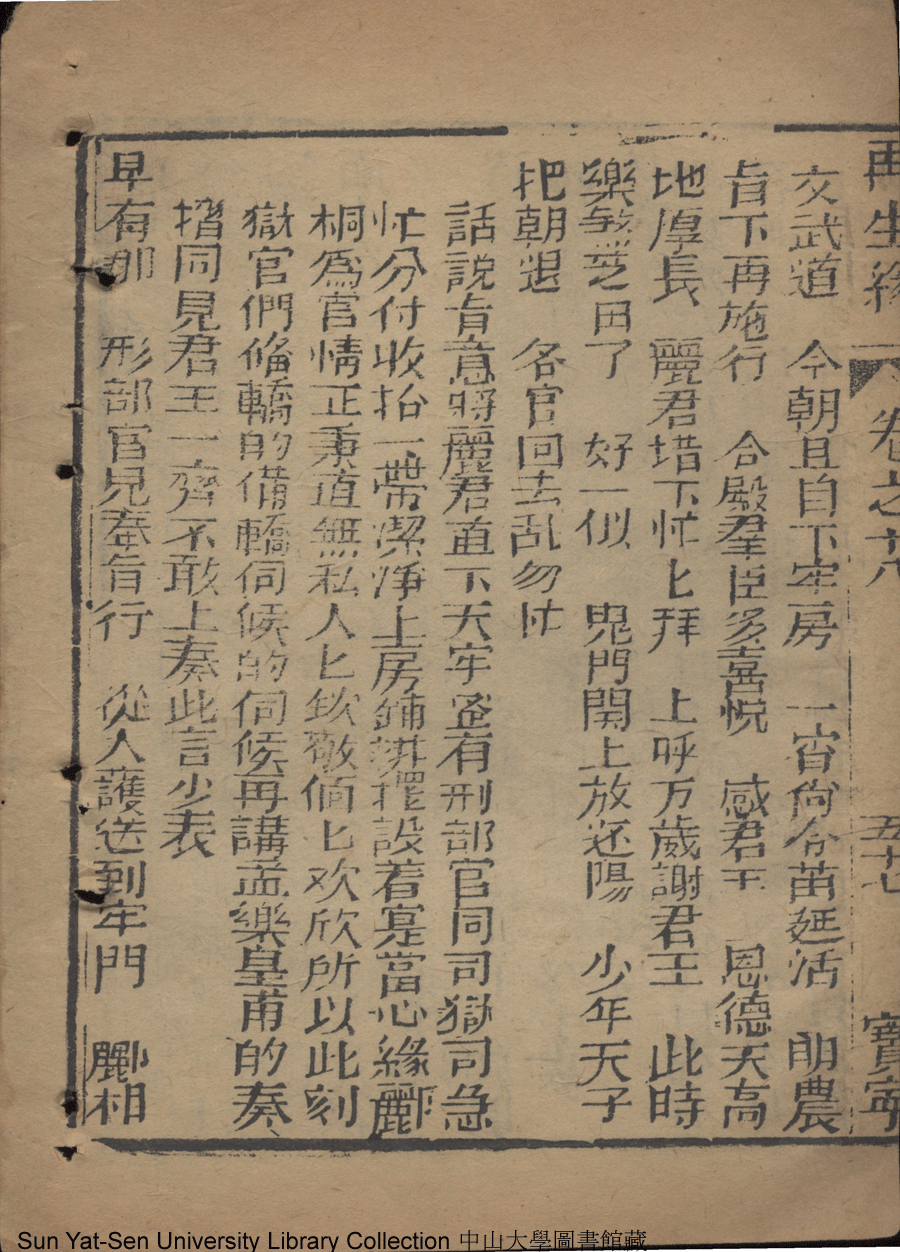 再生緣 卷之十八 五十七 寶寧
文武道 今朝且自下牢房 一宵尙令苗延活 明農
旨下再施行 合殿羣臣多喜悅 感君王 恩德天高
地厚長 麗君堦下忙匕拜 上呼万歲謝君王 此時
樂 田了 好一似 鬼門関上放还陽 少年天子
把朝退 各官回去乱匆忙
話說旨意將麗君直下天牢蚤有刑部官同司獄司急
忙分付收拾一帶潔淨上房鋪 擺設着寔當心緣酈
桐爲官情正秉道無私人匕欽敬個匕欢欣所以此刻
獄官們偹轎的備轎伺候的伺候再講孟樂皇甫的奏
摺同見君王一齊不敢上奏此言少表
早有那 形部官兒奉旨行 從人護送到牢門 酈相
Sun Yat-Sen University Library Collection 中山大學圖書館藏